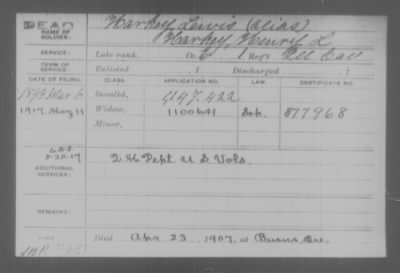 DEAD
NAME OF SOLDIER:
Harkey, Lewis (alias)
Harkey, Henry L
SERVICE:
Late rank, Co. E, 1 Reg't Ill Cav
TERM OF SERVICE:
Enlisted , 1 Discharged , 1
DATE OF FILING. CLASS. APPLICATION NO. LAW. CERTIFICATE NO.
Invalid, 1147.422
1917 May 11 Widow, 1100641 877968
Minor,
ADDITIONAL SERVICES:
2 H Dept U S Vols.
REMARKS:
Died Apr. 23, 1907, at Burns, Ore.